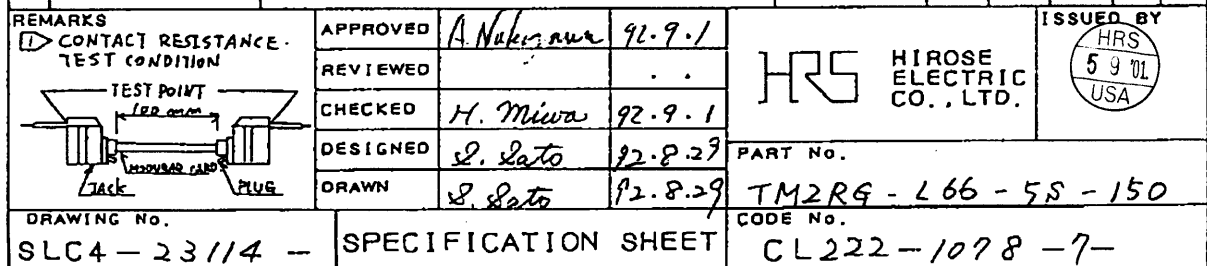 REMARKS
1 CONTACT RESISTANCE.
TEST CONDITION
TEST POINT
100 mm
MODULAR CORD
JACK
PLUG
APPROVED 92.9.1
REVIEWED . .
CHECKED H. Miwa 92.9.1
DESIGNED S. Sato 92.8.29
DRAWN S. Sato 92.8.29
HRS
HIROSE
ELECTRIC
CO., LTD.
ISSUED BY
HRS
5 9 '01
USA
PART No.
TM2RG-L66-5S-150
DRAWING No.
SLC4-23114-
SPECIFICATION SHEET
CODE No.
CL222-1078-7-